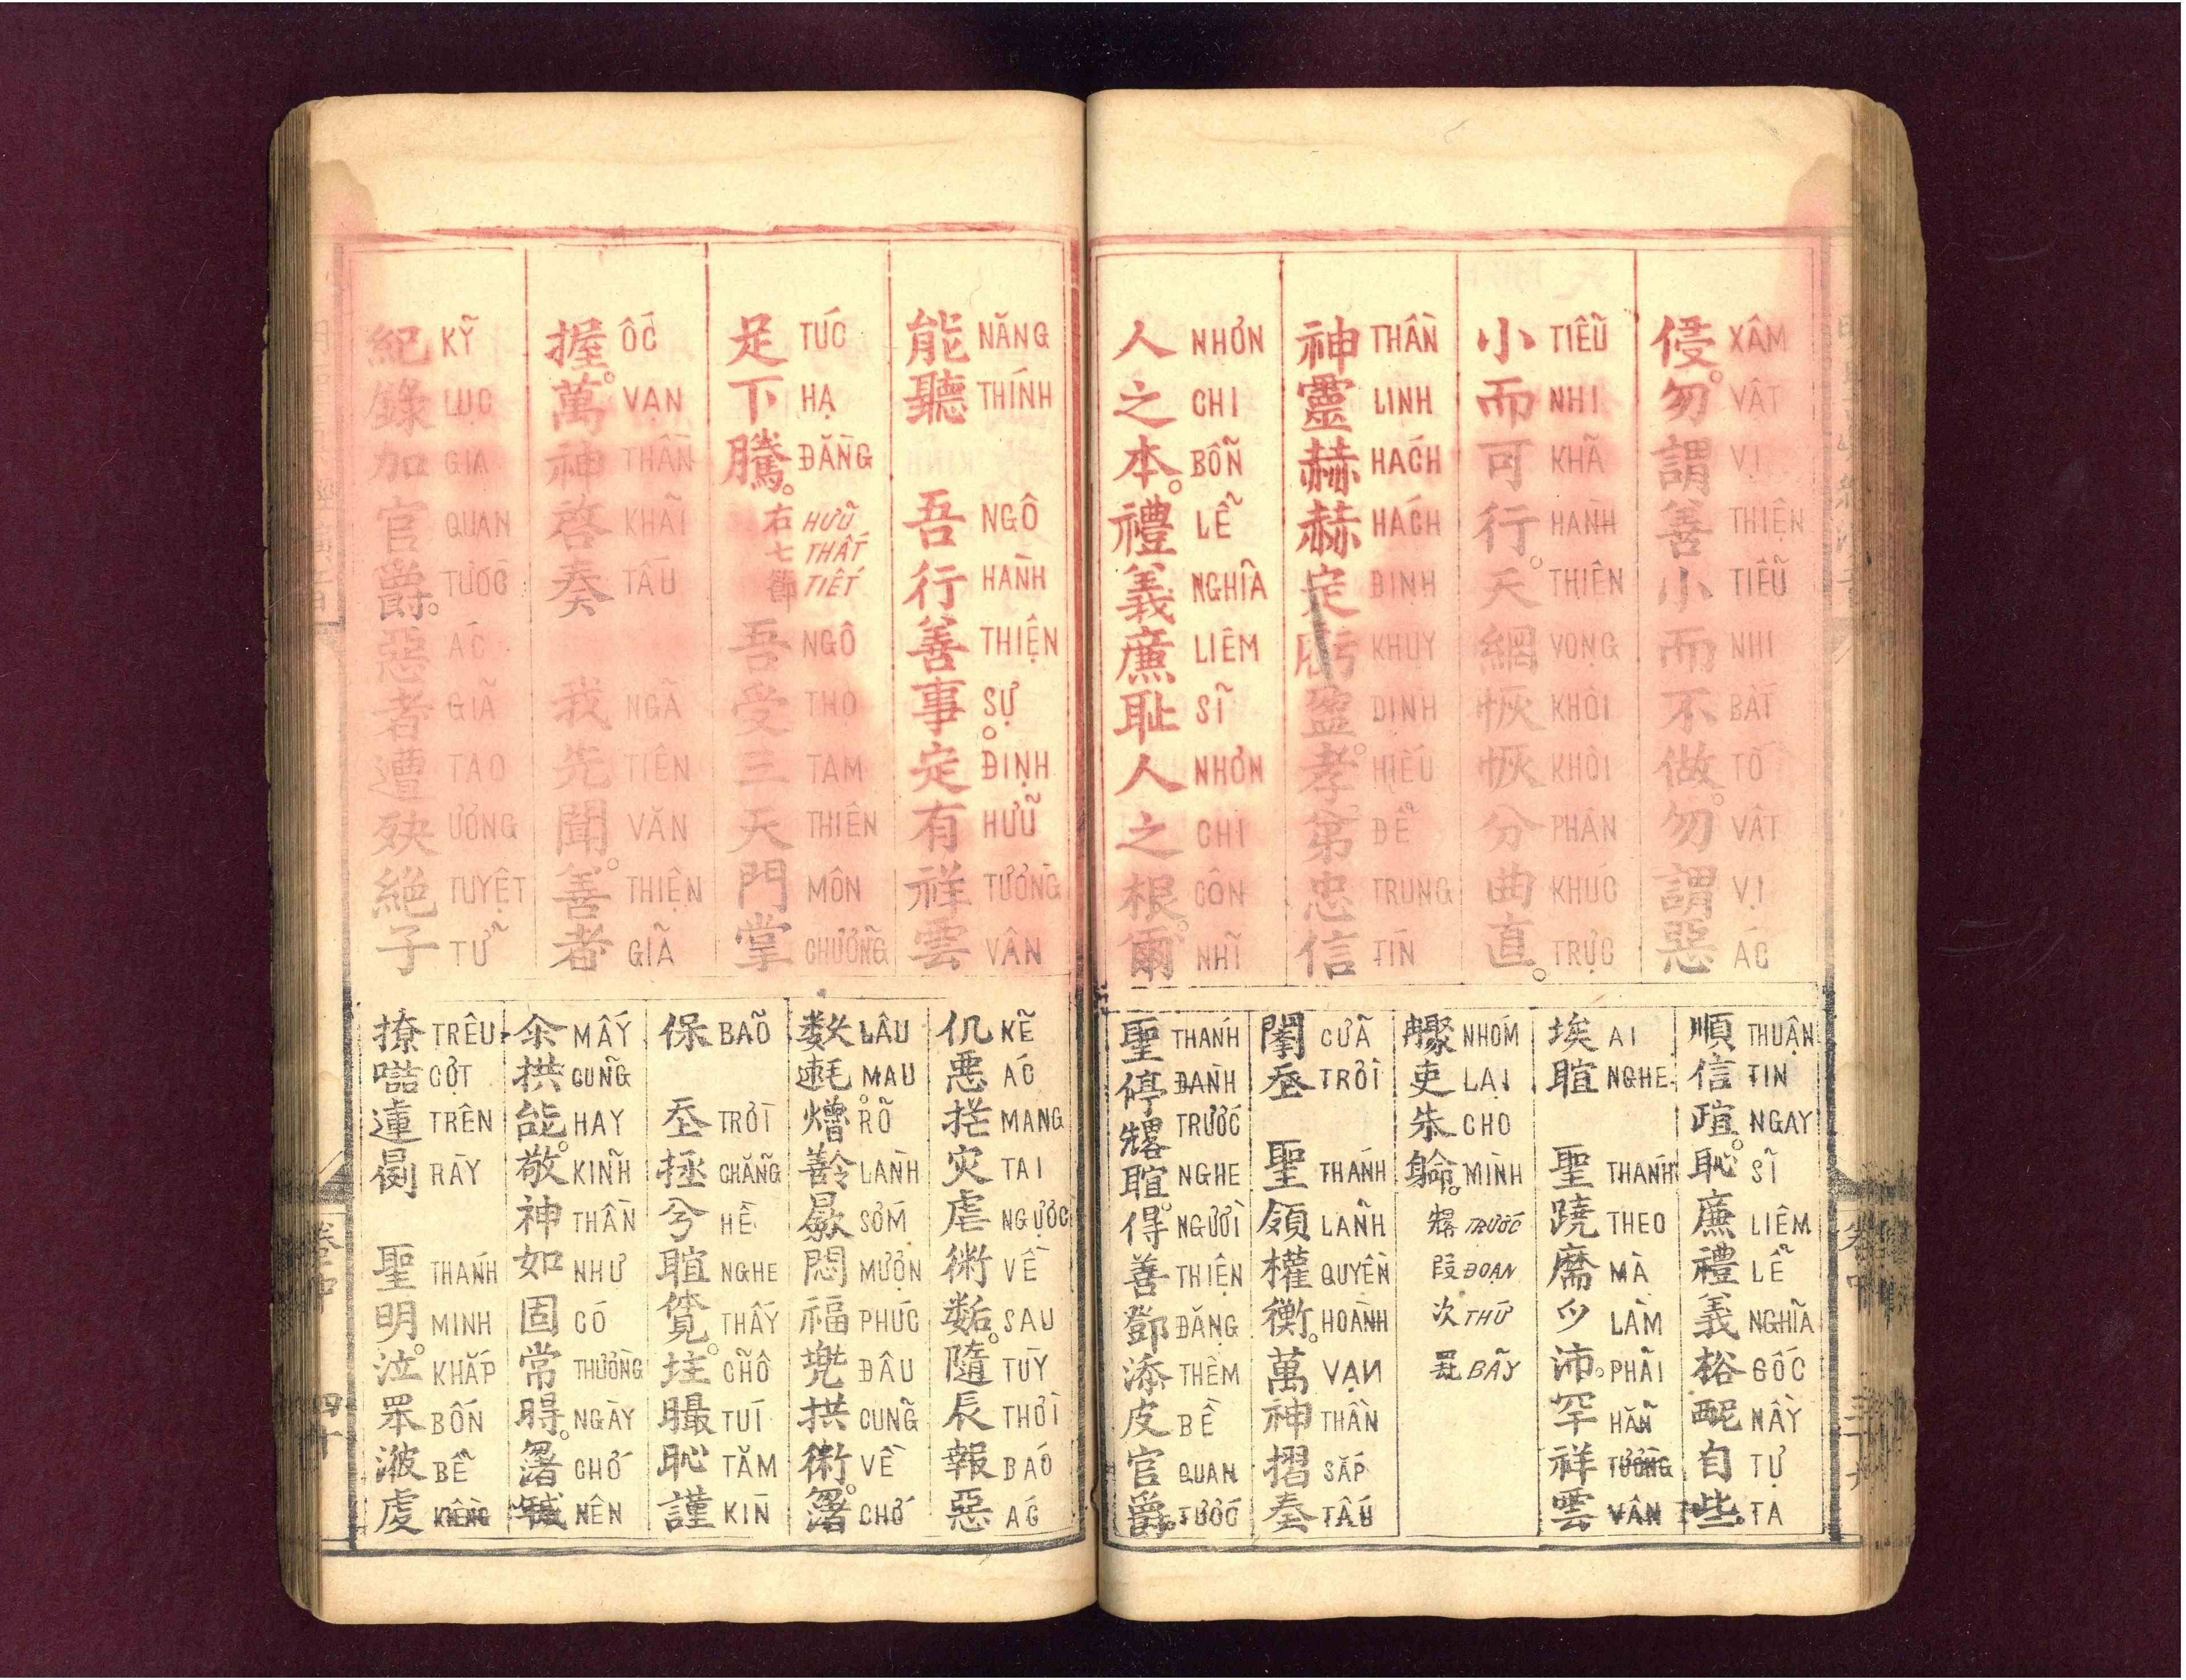 侵。勿謂善小而不做。勿謂惡
XÂM VẬT VỊ THIỆN TIỄU NHI BẤT TỐ VẬT VỊ ÁC
小而可行。天網恢恢分曲直。
TIỄU NHI KHÃ HÀNH THIÊN VỌNG KHÔI KHÔI PHÂN KHÚC TRỰC
神靈赫赫定虧盈。孝弟忠信
THẦN LINH HÁCH HÁCH ĐỊNH KHUY DINH HIẾU ĐỄ TRUNG TÍN
人之本。禮義廉恥人之根。爾
NHƠN CHI BỖN LỄ NGHĨA LIÊM SĨ NHƠN CHI CÔN NHĨ
順信𣈗。恥廉禮義㭲𨐮自些。
THUẬN TIN NGAY SĨ LIÊM LỄ NGHĨA GỐC NẦY TỰ TA
埃暄 聖蹺𢆗𫜵沛。罕祥雲
AI NGHE THÁNH THEO MÀ LÀM PHÃI HẴN TƯỜNG VÂN
吏朱𨉓。
NHÓM LẠI CHO MÌNH
段次𦉱
TRƯỚC ĐOẠN THỨ BÃY
𨷶𡗶 聖領權衡。萬神摺奏
CỮA TRỜI THÁNH LÃNH QUYỀN HOÀNH VẠN THẦN SẮP TẤU
聖停𠓀暄。得善鄧添皮官爵。
THÁNH ĐÀNH TRƯỚC NGHE NGƯỜI THIỆN ĐẶNG THÊM BỀ QUAN TƯỚC
能聽 吾行善事。定有祥雲
NĂNG THÍNH NGÔ HÀNH THIỆN SỰ ĐỊNH HỮU TƯỜNG VÂN
足下騰。右七節 吾受三天門掌
TÚC HẠ ĐẰNG HỮU THẤT TIẾT NGÔ THỌ TAM THIÊN MÔN CHƯỠNG
握。萬神啓奏 我先聞。善者
ỐC VẠN THẦN KHÃI TẤU NGÃ TIÊN VĂN THIỆN GIÃ
紀錄加官爵。惡者遭殃絕子
KỸ LỤC GIA QUAN TƯỚC ÁC GIÃ TAO ƯƠNG TUYỆT TỬ
仉悪㧼灾虐術𢖖。隨辰報惡
KẼ ÁC MANG TAI NGƯỢC VỀ SAU TÙY THỜI BÁO ÁC
福兠拱術。
LÂU MAU RÕ LÀNH SỚM MƯỢN PHÚC ĐÂU CŨNG VỀ CHỚ
保 𡗶拯兮暄覓。最恥謹
BÃO TRỜI CHẴNG HỀ NGHE THẤY CHỖ TÚI TĂM KÍN
拱能。敬神如固常
MẤY CŨNG HAY KÍNH THẦN NHƯ CÓ THƯỜNG NGÀY CHỚ NÊN
撩 聖明。泣
TRÊU CỢT TRÊN RÀY THÁNH MINH KHẮP BỐN BỄ
卷中 四十